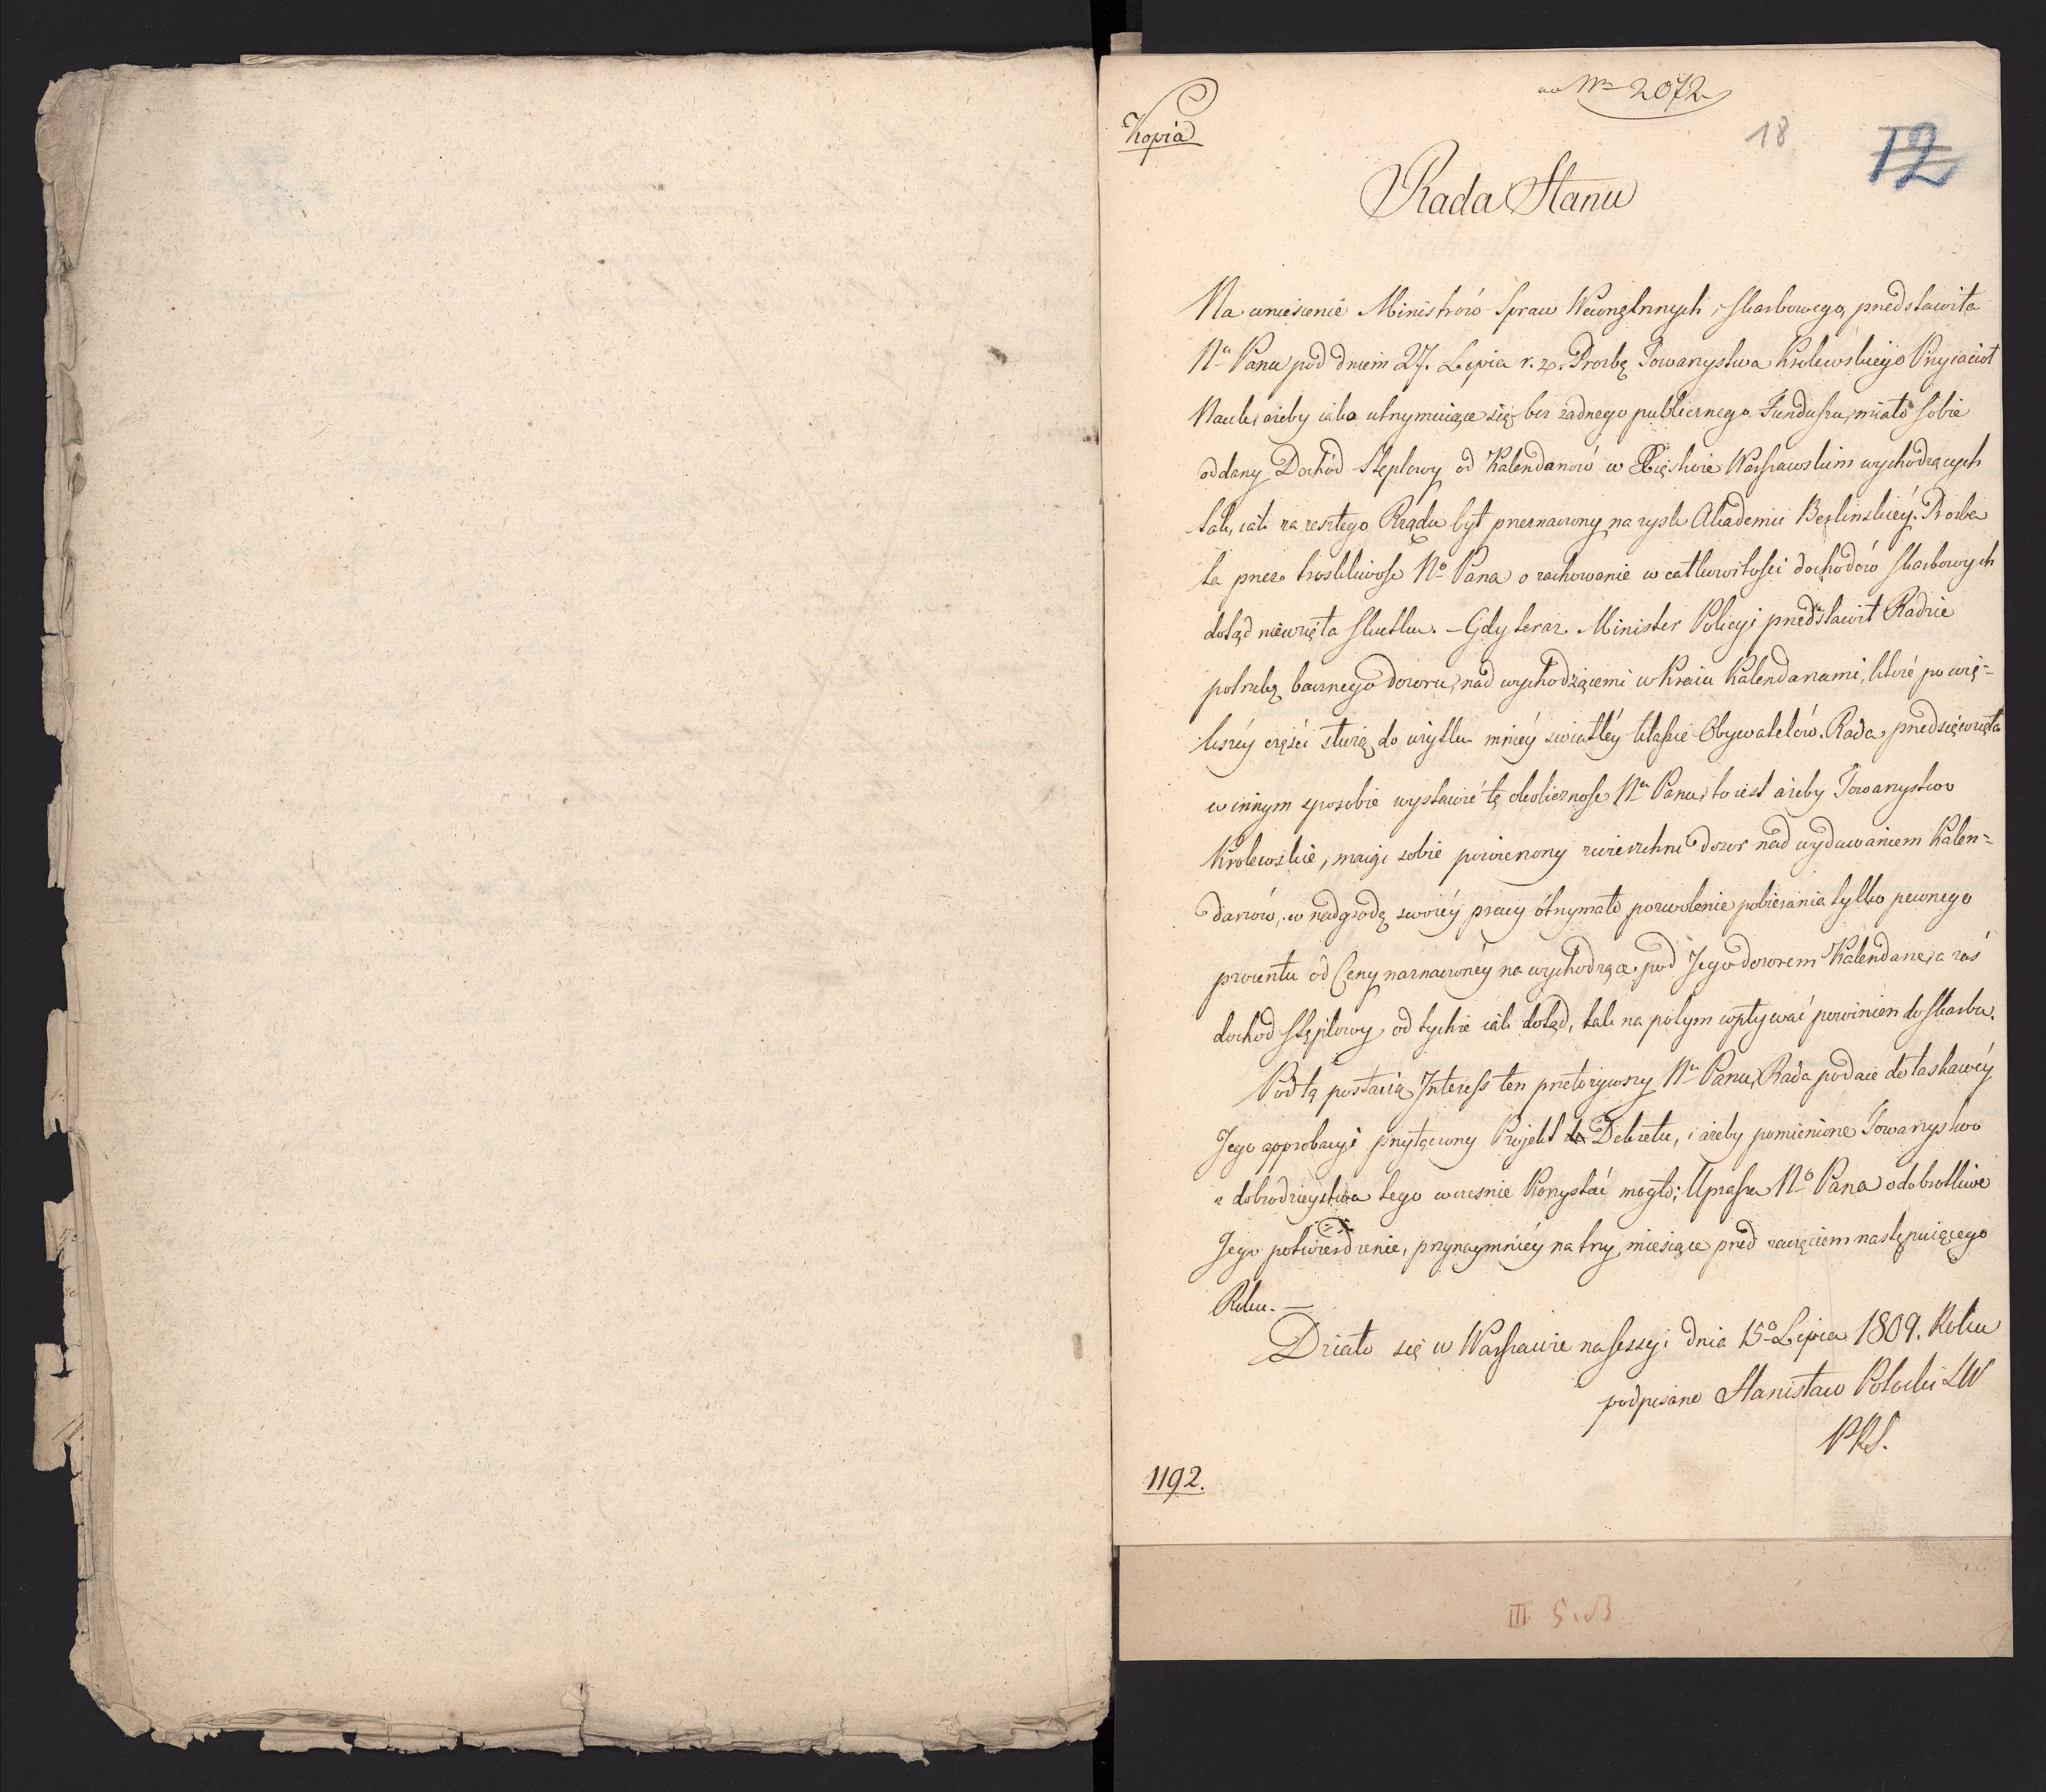 ad Nrm 2072
Kopia
18
12
Rada Stanu
Na wniesienie Ministrów Spraw Wewnętrznych i Skarbowego, przedstawiła
Nu Panu pod dniem 27. Lipca r. z. Prozbę Towarzystwa Królewskiego Przyiaciół
Nauk, ażeby iako utrzymuiące się bez żadnego publicznego Funduszu, miało sobie
oddany Dochód Stęplowy od Kalendarzów w Xięstwie Warszawskim wychodzących
tak, iak za zeszłego Rządu był przeznaczony na zysk Akademii Berlinskiéy. Prozba
ta przez troskliwość No Pana o zachowanie w całkowitości dochodów Skarbowych
dotąd niewzięła Skutku. – Gdy teraz Minister Policyi przedstawił Radzie
potrzebę bacznego dozoru, nad wychodzącemi w Kraiu Kalendarzami, które po wię-
kszéy części służą do użytku mniéy światłéy klassie Obywatelów. Rada przedsięwzięła
w innym sposobie wystawić tę okoliczność Nu Panu, to iest ażeby Towarzystwo
Królewskie, maiąc sobie powierzony zwierzchni dozor nad wydawaniem Kalen=
darzów, w nadgrodę swoiéy pracy otrzymało pozwolenie pobierania tylko pewnego
procentu od Ceny naznaczonéy na wychodzące pod Jego dozorem Kalendarze, a zaś
dochod Stęplowy od tychże iak dotąd, tak na potym wpływać powinien do Skarbu.
Pod tą postacią Interess ten przełożywszy Nu Panu, Rada podaie do łaskawéy
Jego approbacyi przyłączony Projekt do Dekretu, i ażeby pomienione Towarzystwo
z dobrodzieystwa tego wcześnie Korzystać mogło; Uprasza No Pana o dobrotliwe
Jego potwierdzenie, przynaymniéy na trzy miesiące przed zaczęciem następuiącego
Roku. —
Działo się w Warszawie na Sessyi dnia 15o Lipca 1809. Roku
podpisano Stanisław Potocki SW
PRS.
1192.
III 5.